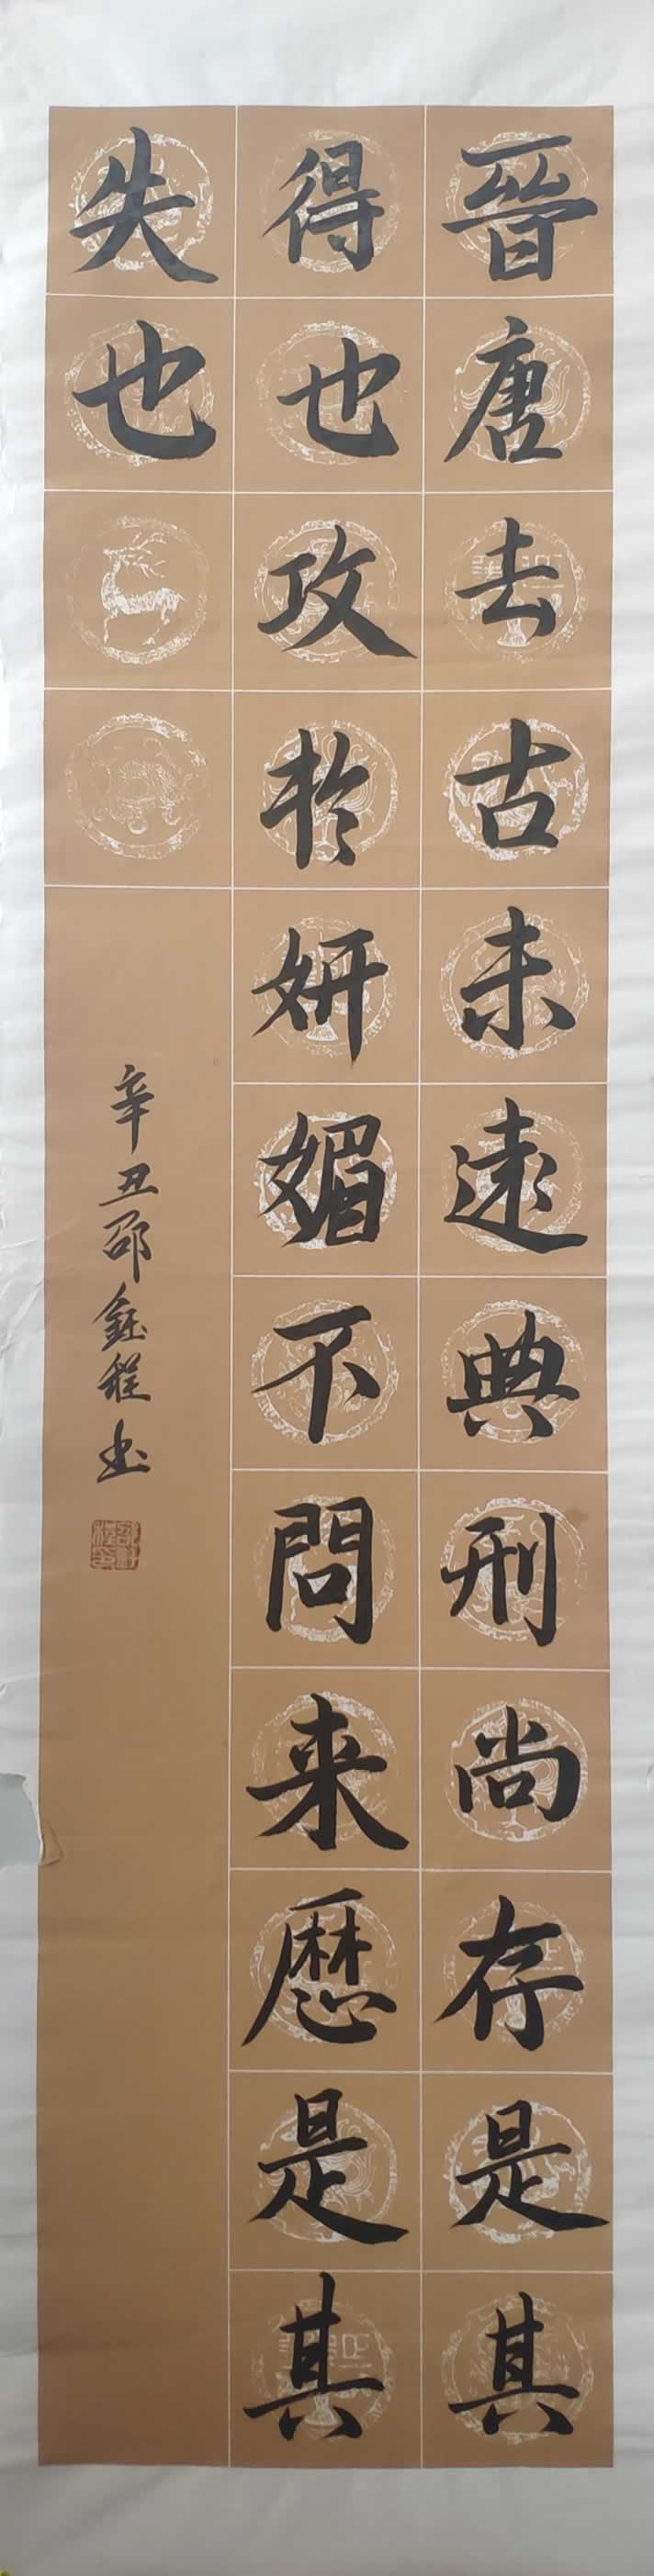 晉唐去古未遠典刑尚存是其
得也攻於妍媚不問来歷是其
失也
辛丑邵鈺程书